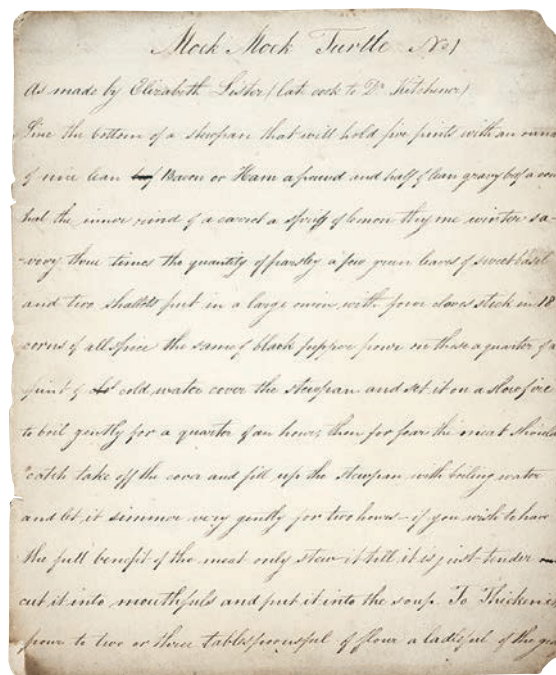 Mock Mock Turtle No 1
As made by Elizabeth Lister (late cook to Dr Kitchener)
Line the bottom of a stewpan that will hold five pints with an ounce
of nice lean Bacon or Ham a pound and half of lean gravy beef a cow
heel the inner rind of a carrot a sprig of lemon thyme winter sa-
-vory three times the quantity of parsley a few green leaves of sweet basil
and two shallots put in a large onion, with four cloves stuck in 18
corns of allspice the same of black pepper pour on these a quarter of a
pint of cold water cover the stewpan and set it on a slow fire
to boil gently for a quarter of an hour, then for fear the meat should
catch take off the cover and fill up the stewpan with boiling water
and let it simmer very gently for two hours - if you wish to have
the full benefit of the meat only stew it till it is just tender
cut it into mouthfuls and put it into the soup. To Thicken it
pour to two or three tablespoonsful of flour a ladleful of the